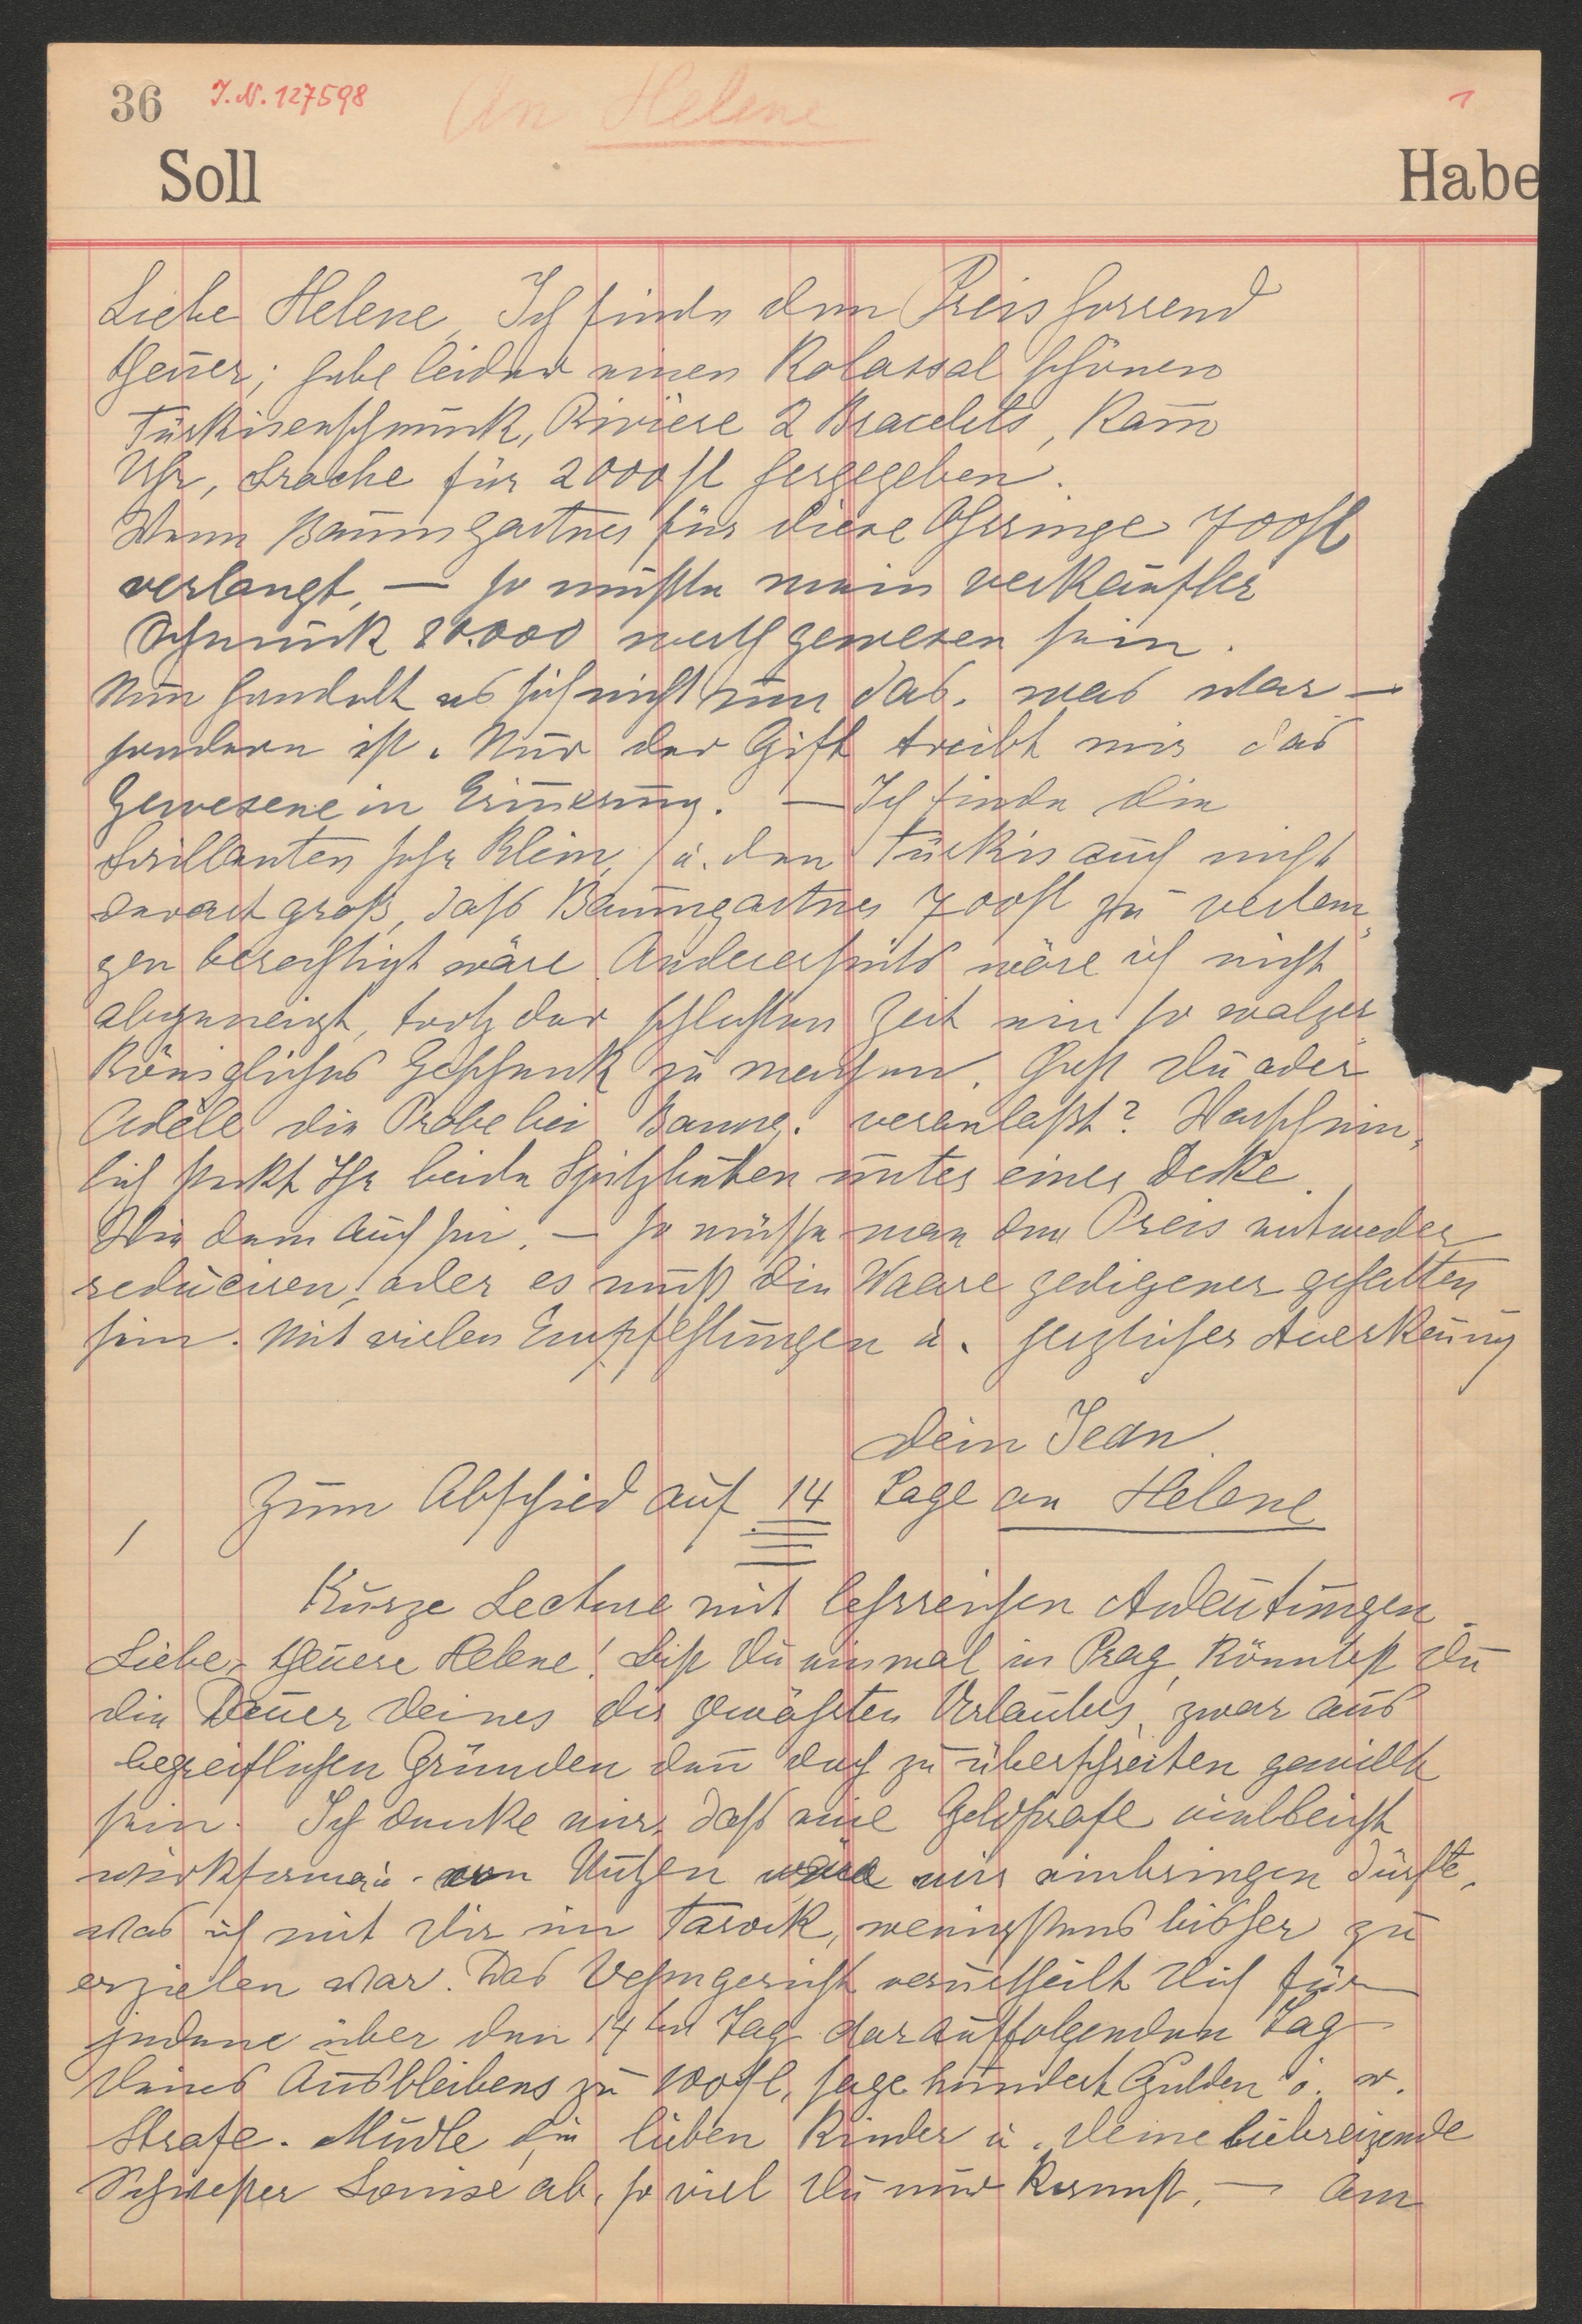 36 J.N. 127598 An Helene 1
Soll Habe
Liebe Helene, Ich finde den Preis horrend
theuer; habe leider einen Kolassal schönen
Türkisenschmuck, Rivière 2 Bracelets, Kam̄
Uhr, Broche für 2000 fl hergegeben.
Wenn Baumgartner für diese Ohrringe 700 fl
verlangt, — so müßte mein verkaufter
Schmuck 20.000 werth gewesen sein.
Nun handelt es sich nicht um das, was war —
sondern ist. Nur der Gift treibt mir das
Gewesene in Erinnerung. — Ich finde die
Brillanten sehr klein, u. den Türkis auch nicht
derart groß, daß Baumgartner 700 fl zu verlan„
gen berechtigt wäre. Andererseits wäre ich nicht
abgeneigt, trotz der schlechten Zeit ein so walzer„
königliches Geschenk zu machen. Hast Du oder
Adèle die Probe bei Baumg. veranlaßt? Warschein„
lich steckt Ihr beide Spitzbuben unter einer Decke.
Wie dem auch sei. — so müsse man den Preis entweder
reduciren, oder es muß die Waare gedigener gehalten
sein. Mit vielen Empfehlungen u. herzlicher Anerkenung
Dein Jean.
Zum Abschied auf 14 Tage an Helene
Kurze Lecture mit lehrreichen Andeutungen.
Liebe, theuere Helene! Bist Du einmal in Prag, könntest Du
die Dauer Deines dir gewährten Urlaubes, zwar aus
begreiflichen Gründen den̄ doch zu überschreiten gewillt
sein. Ich denke mir, daß eine Geldstrafe vielleicht
von Nutzen wäre mir einbringen dürfte,
was ich mit Dir im Tarock, wenigstens bisher zu
erzielen war. Das Vehmgericht verurtheilt Dich für
jedene über den 14ten Tag darauffolgenden Tag
Deines Ausbleibens zu 100 fl, sage hundert Gulden ö. w.
Strafe. Mudle die lieben Kinder u. Deine liebreizende
Schwester Louise ab, so viel Du nur kannst. — Am